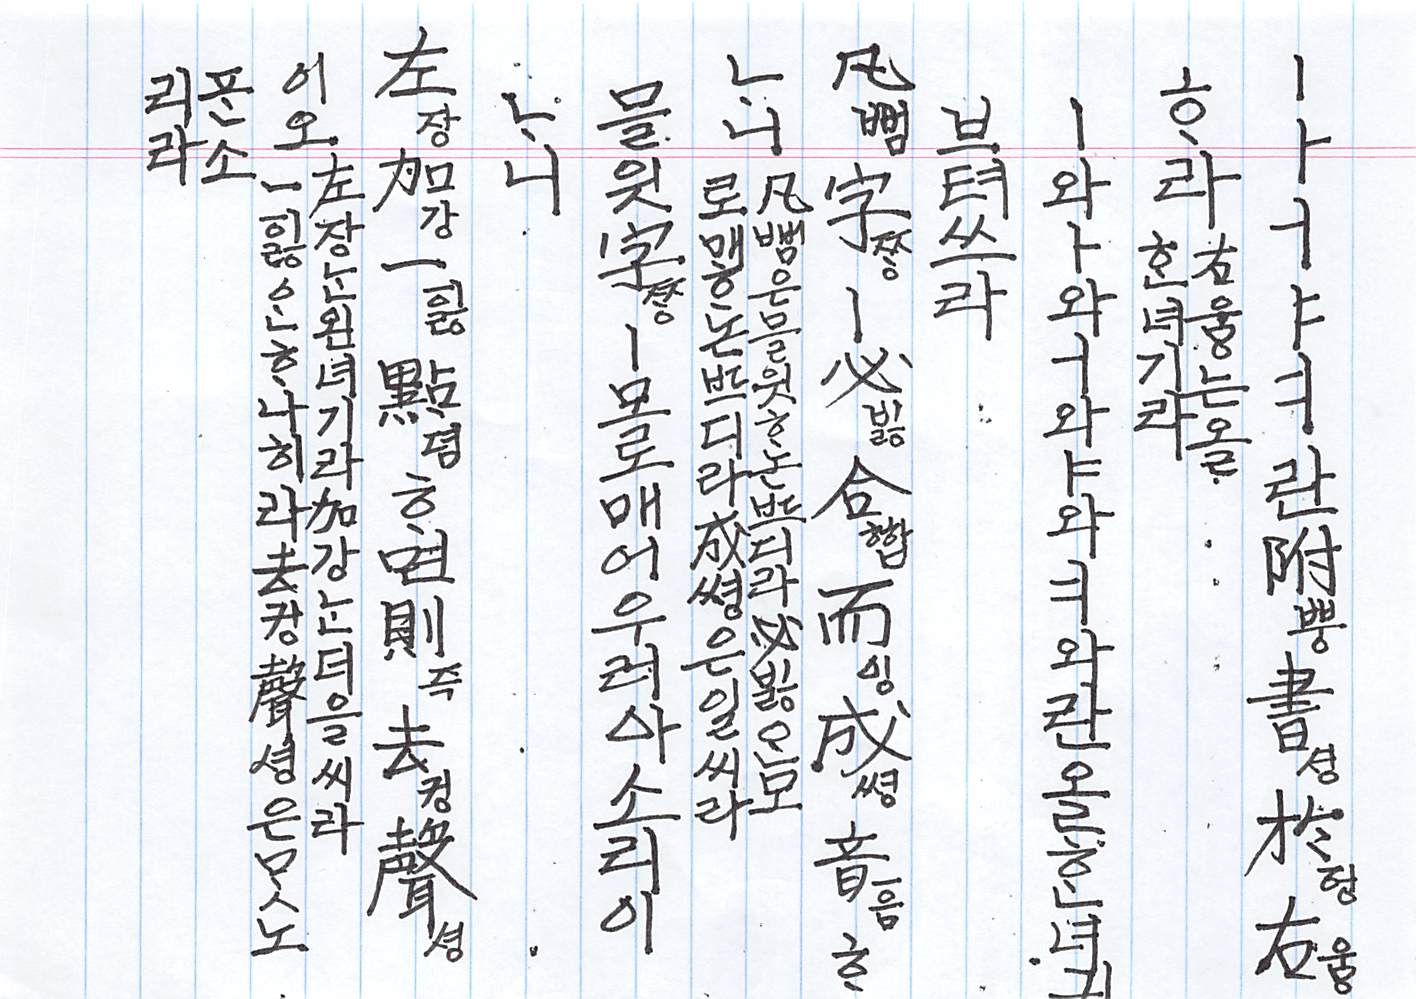 ㅣㅏㅓㅑㅕ란附뿡書셩於헝右움
ᄒᆞ라
右움는올
ᄒᆞᆫ녀기라
ㅣ와ㅏ와ㅓ와ㅑ와ㅕ와란올ᄒᆞᆫ녀긔
브텨쓰라
凡뻠字ᄍᆞᆼㅣ必비ᇙ合ᅘᅡᆸ而ᅀᅵᆼ成쎵音ᅙᅳᆷᄒᆞ
ᄂᆞ니
凡뻠은믈읫ᄒᆞ논ᄠᅳ디라必비ᇙᄋᆞᆫ모
로매ᄒᆞ논ᄠᅳ디라成쎵은일씨라
믈읫字ᄍᆞᆼㅣ모로매어우러ᅀᅡ소리이
ᄂᆞ니
左장加강一ᅙᅵᇙ點뎜ᄒᆞ면則즉去컹聲셩
이오
左장ᄂᆞᆫ왼녀기라加강ᄂᆞᆫ더을씨라
一ᅙᅵᇙᄋᆞᆫᄒᆞ나히라去컹聲셩은ᄆᆞᆺ노
ᄑᆞᆫ소
리라